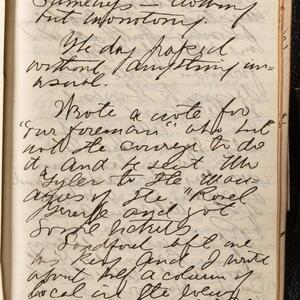 Sameness — nothing
but monotony.
The day passed
without anything un-
usual.
Wrote a note for
"our foreman" who had
not the courage to do
it, and he sent Mr
Tyler to the Man-
agers of the "Rosel
and got
some tickets.
Sandford left me
his keys and I write
about half a column of
local in the